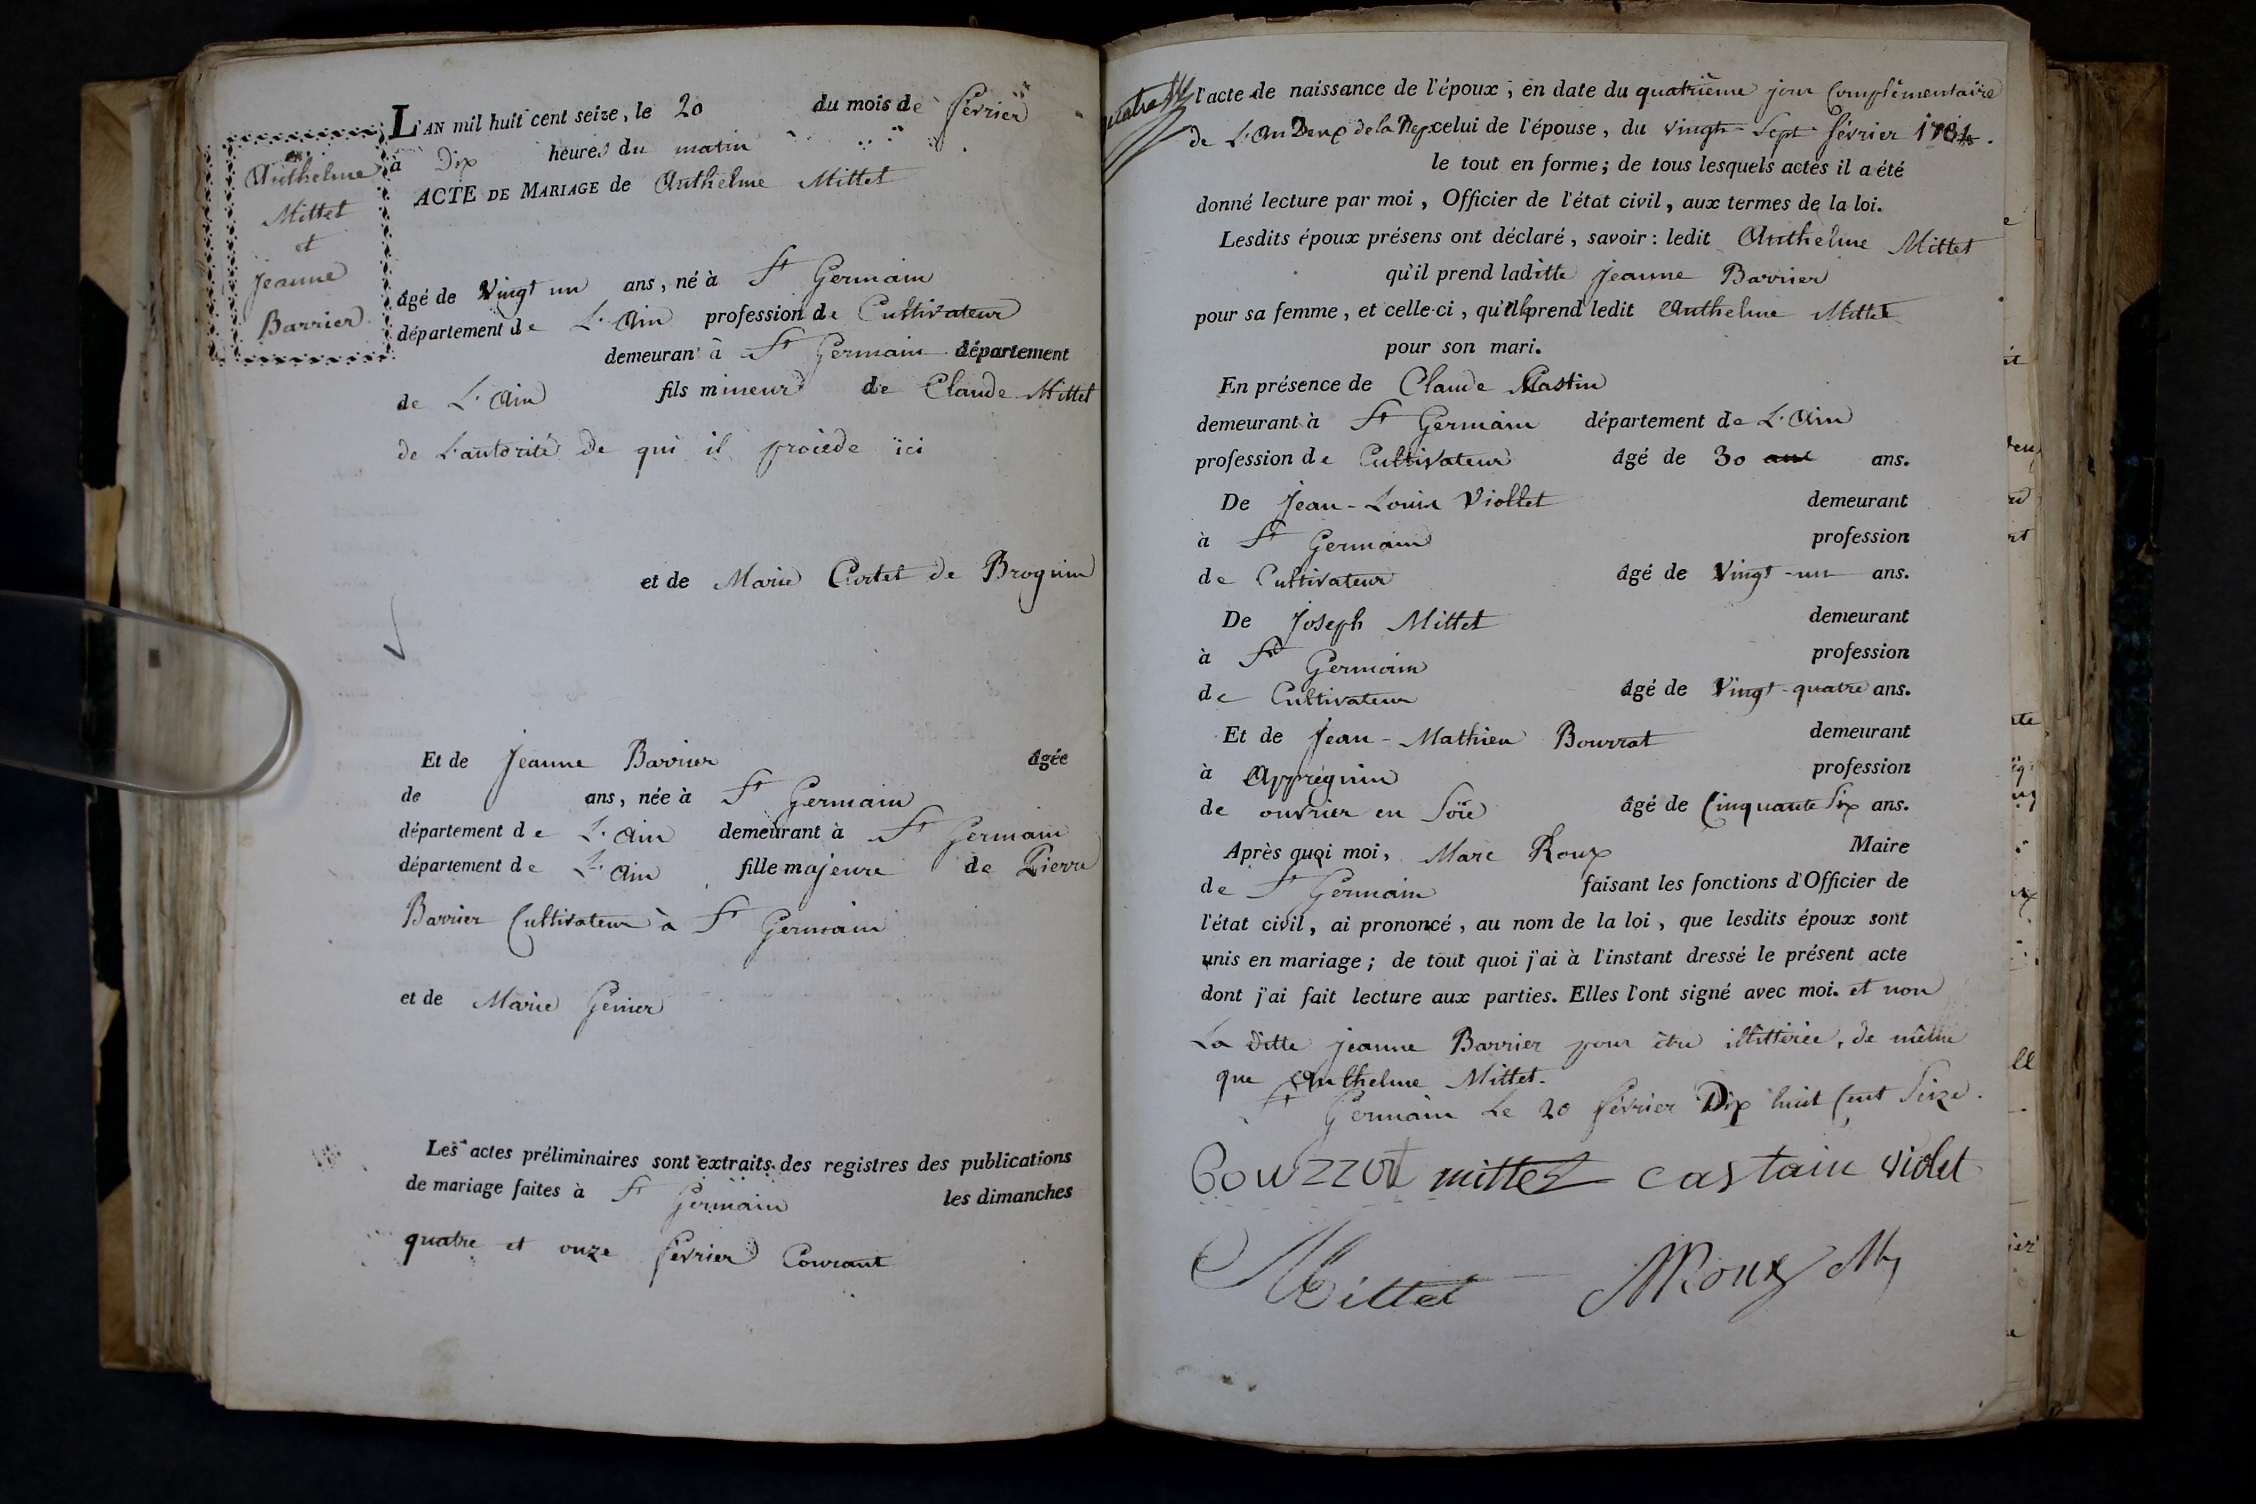 Anthelme
Mittet
et
Jeanne
Barrier
L'AN mil huit cent seize, le 20 du mois de février
à Dix heures du matin
ACTE DE MARIAGE de Anthelme Mittet
âgé de Vingt un ans, né à St Germain
département de L'Ain profession de Cultivateur
demeurant à St Germain département
de L'Ain fils mineur de Claude Mittet
de L'autorité de qui il procède ïci
et de Marie Curtet de Brognin
Et de Jeanne Barrier âgée
de ans, née à St Germain
département de L'Ain demeurant à St Germain
département de L'Ain fille majeure de Pierre
Barrier Cultivateur à St Germain
et de Marie Genier
Les actes préliminaires sont extraits des registres des publications
de mariage faites à St Germain les dimanches
quatre et onze février Courant
l'acte de naissance de l'époux, en date du quatrième jour Complémentaire
de L'an Deux de la Rep celui de l'épouse, du vingt-Sept février
le tout en forme; de tous lesquels actes il a été
donné lecture par moi, Officier de l'état civil, aux termes de la loi.
Lesdits époux présens ont déclaré, savoir: ledit Anthelme Mittet
qu'il prend laditte Jeanne Barrier
pour sa femme, et celle-ci, qu'elle prend ledit Anthelme Mittet
pour son mari.
En présence de Claude Castin
demeurant à St Germain département de L'Ain
profession de Cultivateur âgé de 30 ans ans.
De Jean-Louis Viollet demeurant
à St Germain profession
de Cultivateur âgé de Vingt-un ans.
De Joseph Mittet demeurant
à St Germain profession
de Cultivateur âgé de Vingt-quatre ans.
Et de Jean-Mathieu Bourrat demeurant
à Apprégnin profession
de ouvrier en Soïe âgé de Cinquante Six ans.
Après quoi moi, Marc Roux Maire
de St Germain faisant les fonctions d'Officier de
l'état civil, ai prononcé, au nom de la loi, que lesdits époux sont
unis en mariage; de tout quoi j'ai à l'instant dressé le présent acte
dont j'ai fait lecture aux parties. Elles l'ont signé avec moi. et non
La ditte Jeanne Barrier pour être illittérée, de même
que Anthelme Mittet.
St Germain Le 20 février Dix huit Cent Seize.
mittet castain violet
Mittet MRoux